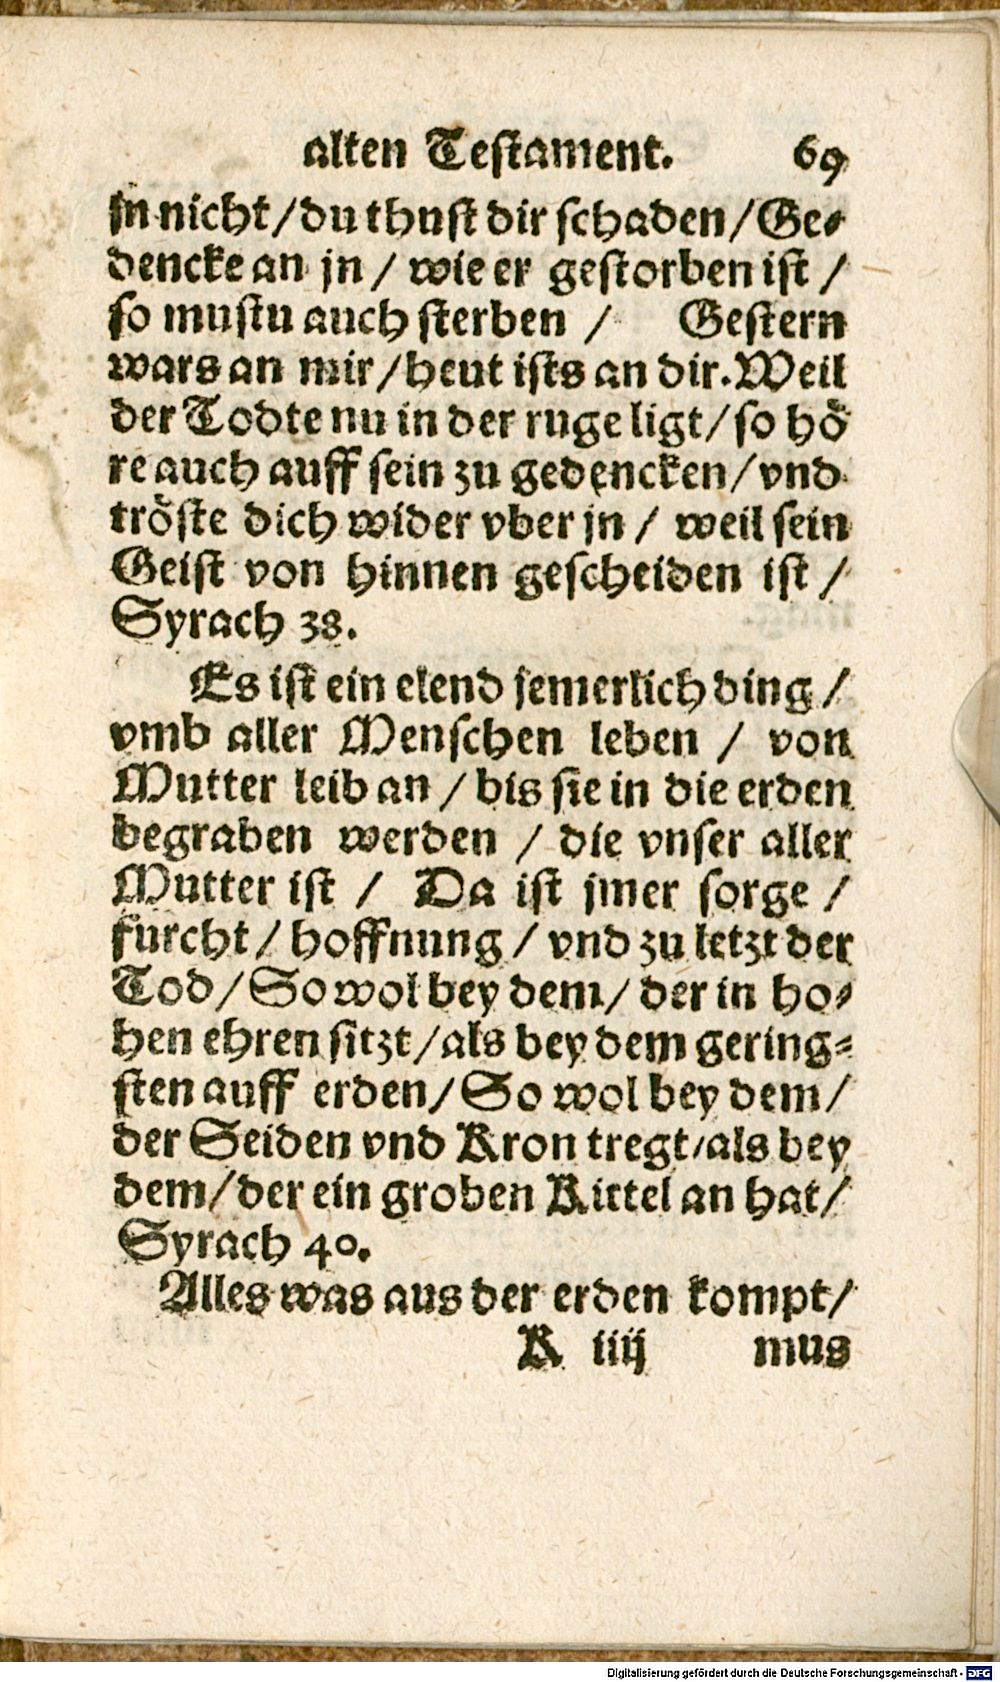 alten Testament. 69
jn nicht / du thust dir schaden / Ge-
dencke an jn / wie er gestorben ist /
so mustu auch sterben / Gestern
wars an mir / heut ists an dir. Weil
der Todte nu in der ruge ligt / so hö
re auch auff sein zu gedencken / vnd
tröste dich wider vber jn / weil sein
Geist von hinnen gescheiden ist /
Syrach 38.
Es ist ein elend jemerlich ding /
vmb aller Menschen leben / von
Mutter leib an / bis sie in die erden
begraben werden / die vnser aller
Mutter ist / Da ist jmer sorge /
furcht / hoffnung / vnd zu letzt der
Tod / So wol bey dem / der in ho-
hen ehren sitzt / als bey dem gering-
sten auff erden / So wol bey dem /
der Seiden vnd Kron tregt / als bey
dem / der ein groben Kittel an hat /
Syrach 40.
Alles was aus der erden kompt /
K iiij mus
Digitalisierung gefördert durch die Deutsche Forschungsgemeinschaft - DFG